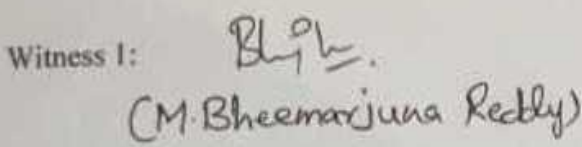 Witness 1:
(M.Bheemarjuna Reddy)